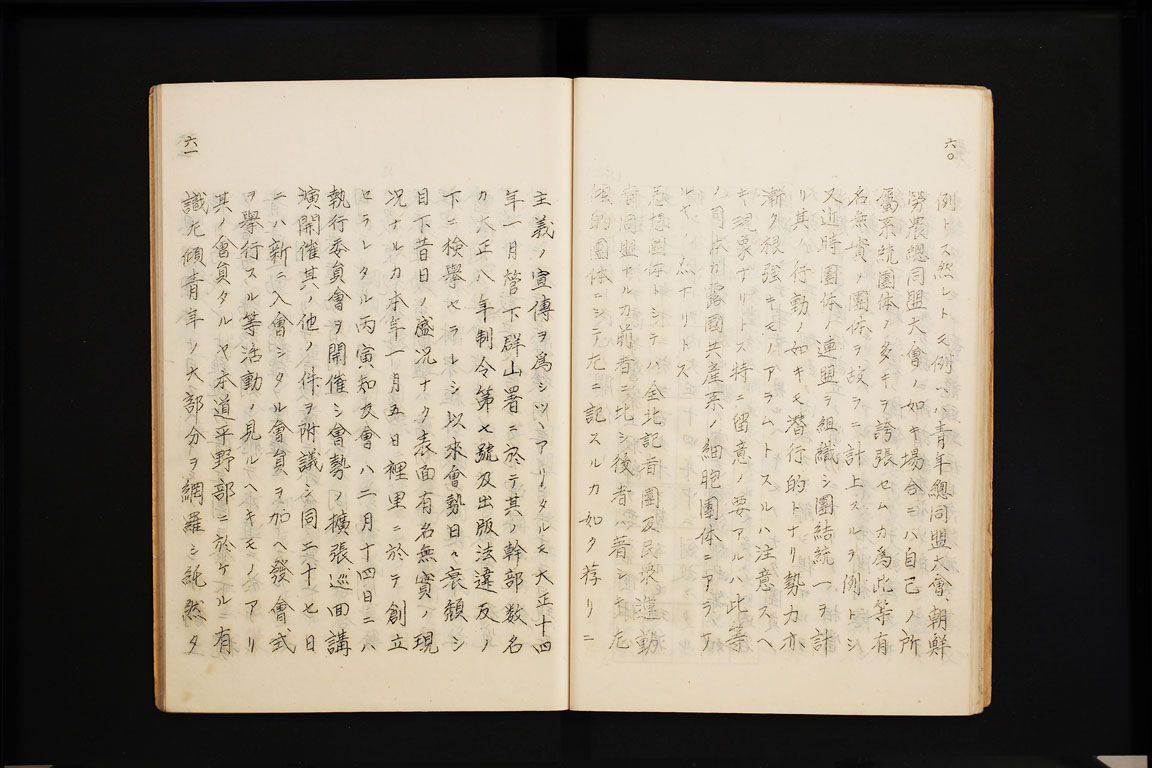 六〇
例トス然レトモ例ヘハ青年總同盟大會、朝鮮
勞農總同盟大會ノ如キ場合ニハ自己ノ所
屬系統團体ノ多キヲ誇張セムカ為此等有
名無實ノ團体ヲ故ラニ計上スルヲ例トシ
又近時團体ノ連盟ヲ組織シ團結統一ヲ計
リ其ノ行動ノ如キモ潜行的トナリ勢力亦
漸ク根強キモノアラムトスルハ注意スヘ
キ現象ナリトス特ニ留意ノ要アルハ此等
ノ團体カ露國共産系ノ細胞團体ニアラサ
ルヤノ点ナリトス
思想團体トシテハ全北記者團及民衆運動
者同盟アルカ前者ニ比シ後者ハ著シキ左
傾的團体ニシテ左ニ記スルカ如ク荐リニ
六一
主義ノ宣傳ヲ為シツヽアリタルモ大正十四
年一月管下群山署ニ於テ其ノ幹部数名
カ大正八年制令第七號及出版法違反ノ
下ニ檢擧セラレシ以來會勢日々衰頽シ
目下昔日ノ盛况ナク表面有名無實ノ現
况ナルカ本年一月五日裡里ニ於テ創立
セラレタル丙寅知友會ハ二月十四日ニハ
執行委員會ヲ開催シ會勢ノ擴張巡回講
演開催其ノ他ノ件ヲ附議シ同二十七日
ニハ新ニ入會シタル會員ヲ加ヘ發會式
ヲ擧行スル等活動ノ見ルヘキモノアリ
其ノ會員タルヤ本道平野部ニ於ケル有
識左傾青年ノ大部分ヲ網羅シ純然タ